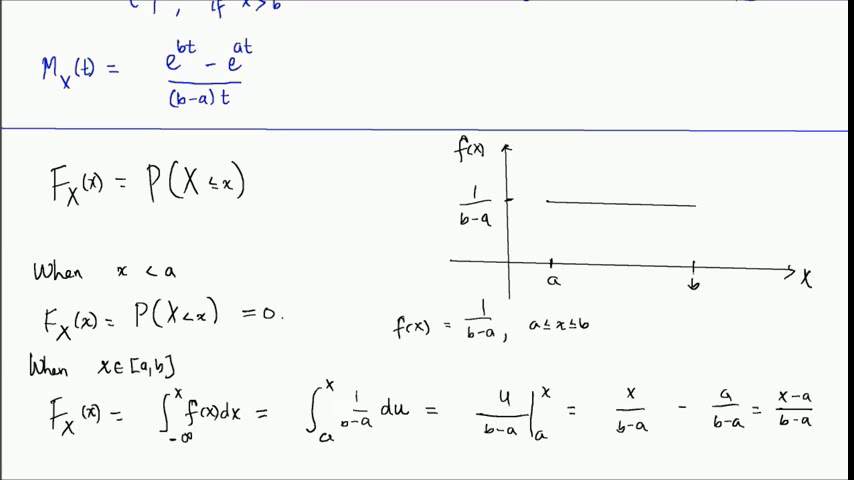 1 , if x > b
M_X(t) = (e^{bt} - e^{at}) / ((b-a)t)
f(x)
F_X(x) = P(X ≤ x)
1/(b-a)
a b X
When x < a
F_X(x) = P(X < x) = 0.
f(x) = 1/(b-a) , a ≤ x ≤ b
When x ∈ [a,b]
F_X(x) = ∫_{-∞}^{x} f(x)dx = ∫_{a}^{x} 1/(b-a) du = u/(b-a) |_{a}^{x} = x/(b-a) - a/(b-a) = (x-a)/(b-a)